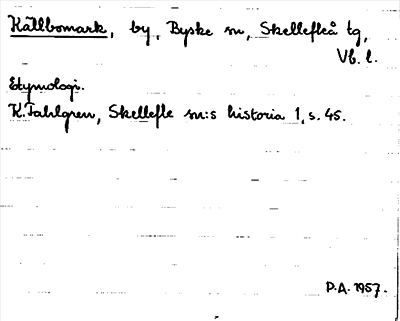 Källbomark, by, Byske sn, Skellefteå tg,
Vb. l.
Etymologi.
K. Fahlgren, Skellefte sn:s historia 1, s. 45.
P.A. 1957.